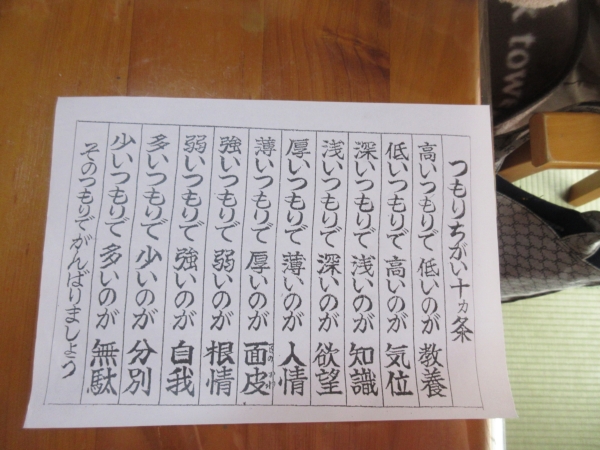 つもりちがい十カ条
高いつもりで低いのが教養
低いつもりで高いのが気位
深いつもりで浅いのが知識
浅いつもりで深いのが欲望
厚いつもりで薄いのが人情
薄いつもりで厚いのが面皮
強いつもりで弱いのが根情
弱いつもりで強いのが自我
多いつもりで少いのが分別
少いつもりで多いのが無駄
そのつもりでがんばりましょう